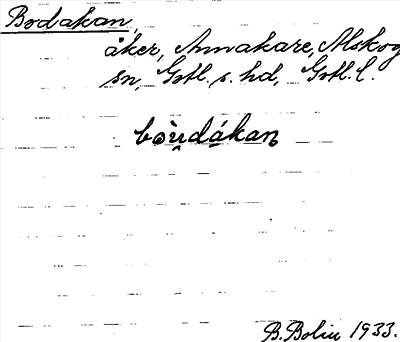 Bodakan,
åker, Annakare, Alskog
sn, Gotl. s. hd, Gotl. l.
bòu̯dákan
B. Bolin 1933.